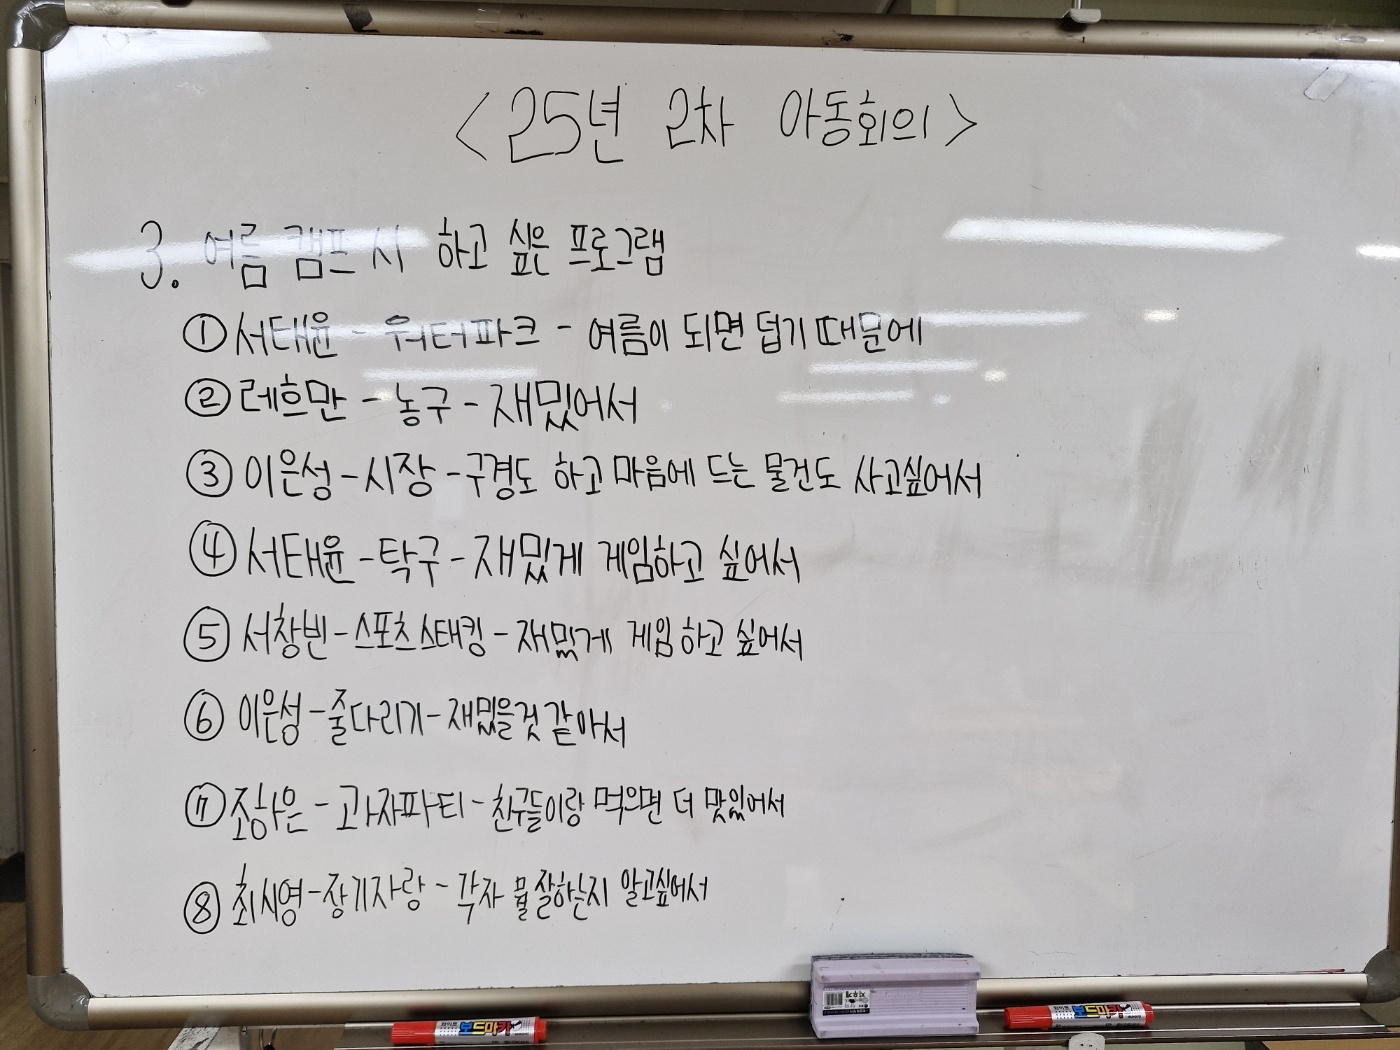 <25년 2차 아동회의>
3. 여름 캠프 시 하고 싶은 프로그램
① 서태윤 - 워터파크 - 여름이 되면 덥기 때문에
② 레흐만 - 농구 - 재밌어서
③ 이은성 - 시장 - 구경도 하고 마음에 드는 물건도 사고싶어서
④ 서태윤 - 탁구 - 재밌게 게임하고 싶어서
⑤ 서창빈 - 스포츠 스태킹 - 재밌게 게임 하고 싶어서
⑥ 이은성 - 줄다리기 - 재밌을것 같아서
⑦ 조하은 - 과자파티 - 친구들이랑 먹으면 더 맛있어서
⑧ 최시영 - 장기자랑 - 각자 뭘 잘하는지 알고싶어서
보드마카
보드마카